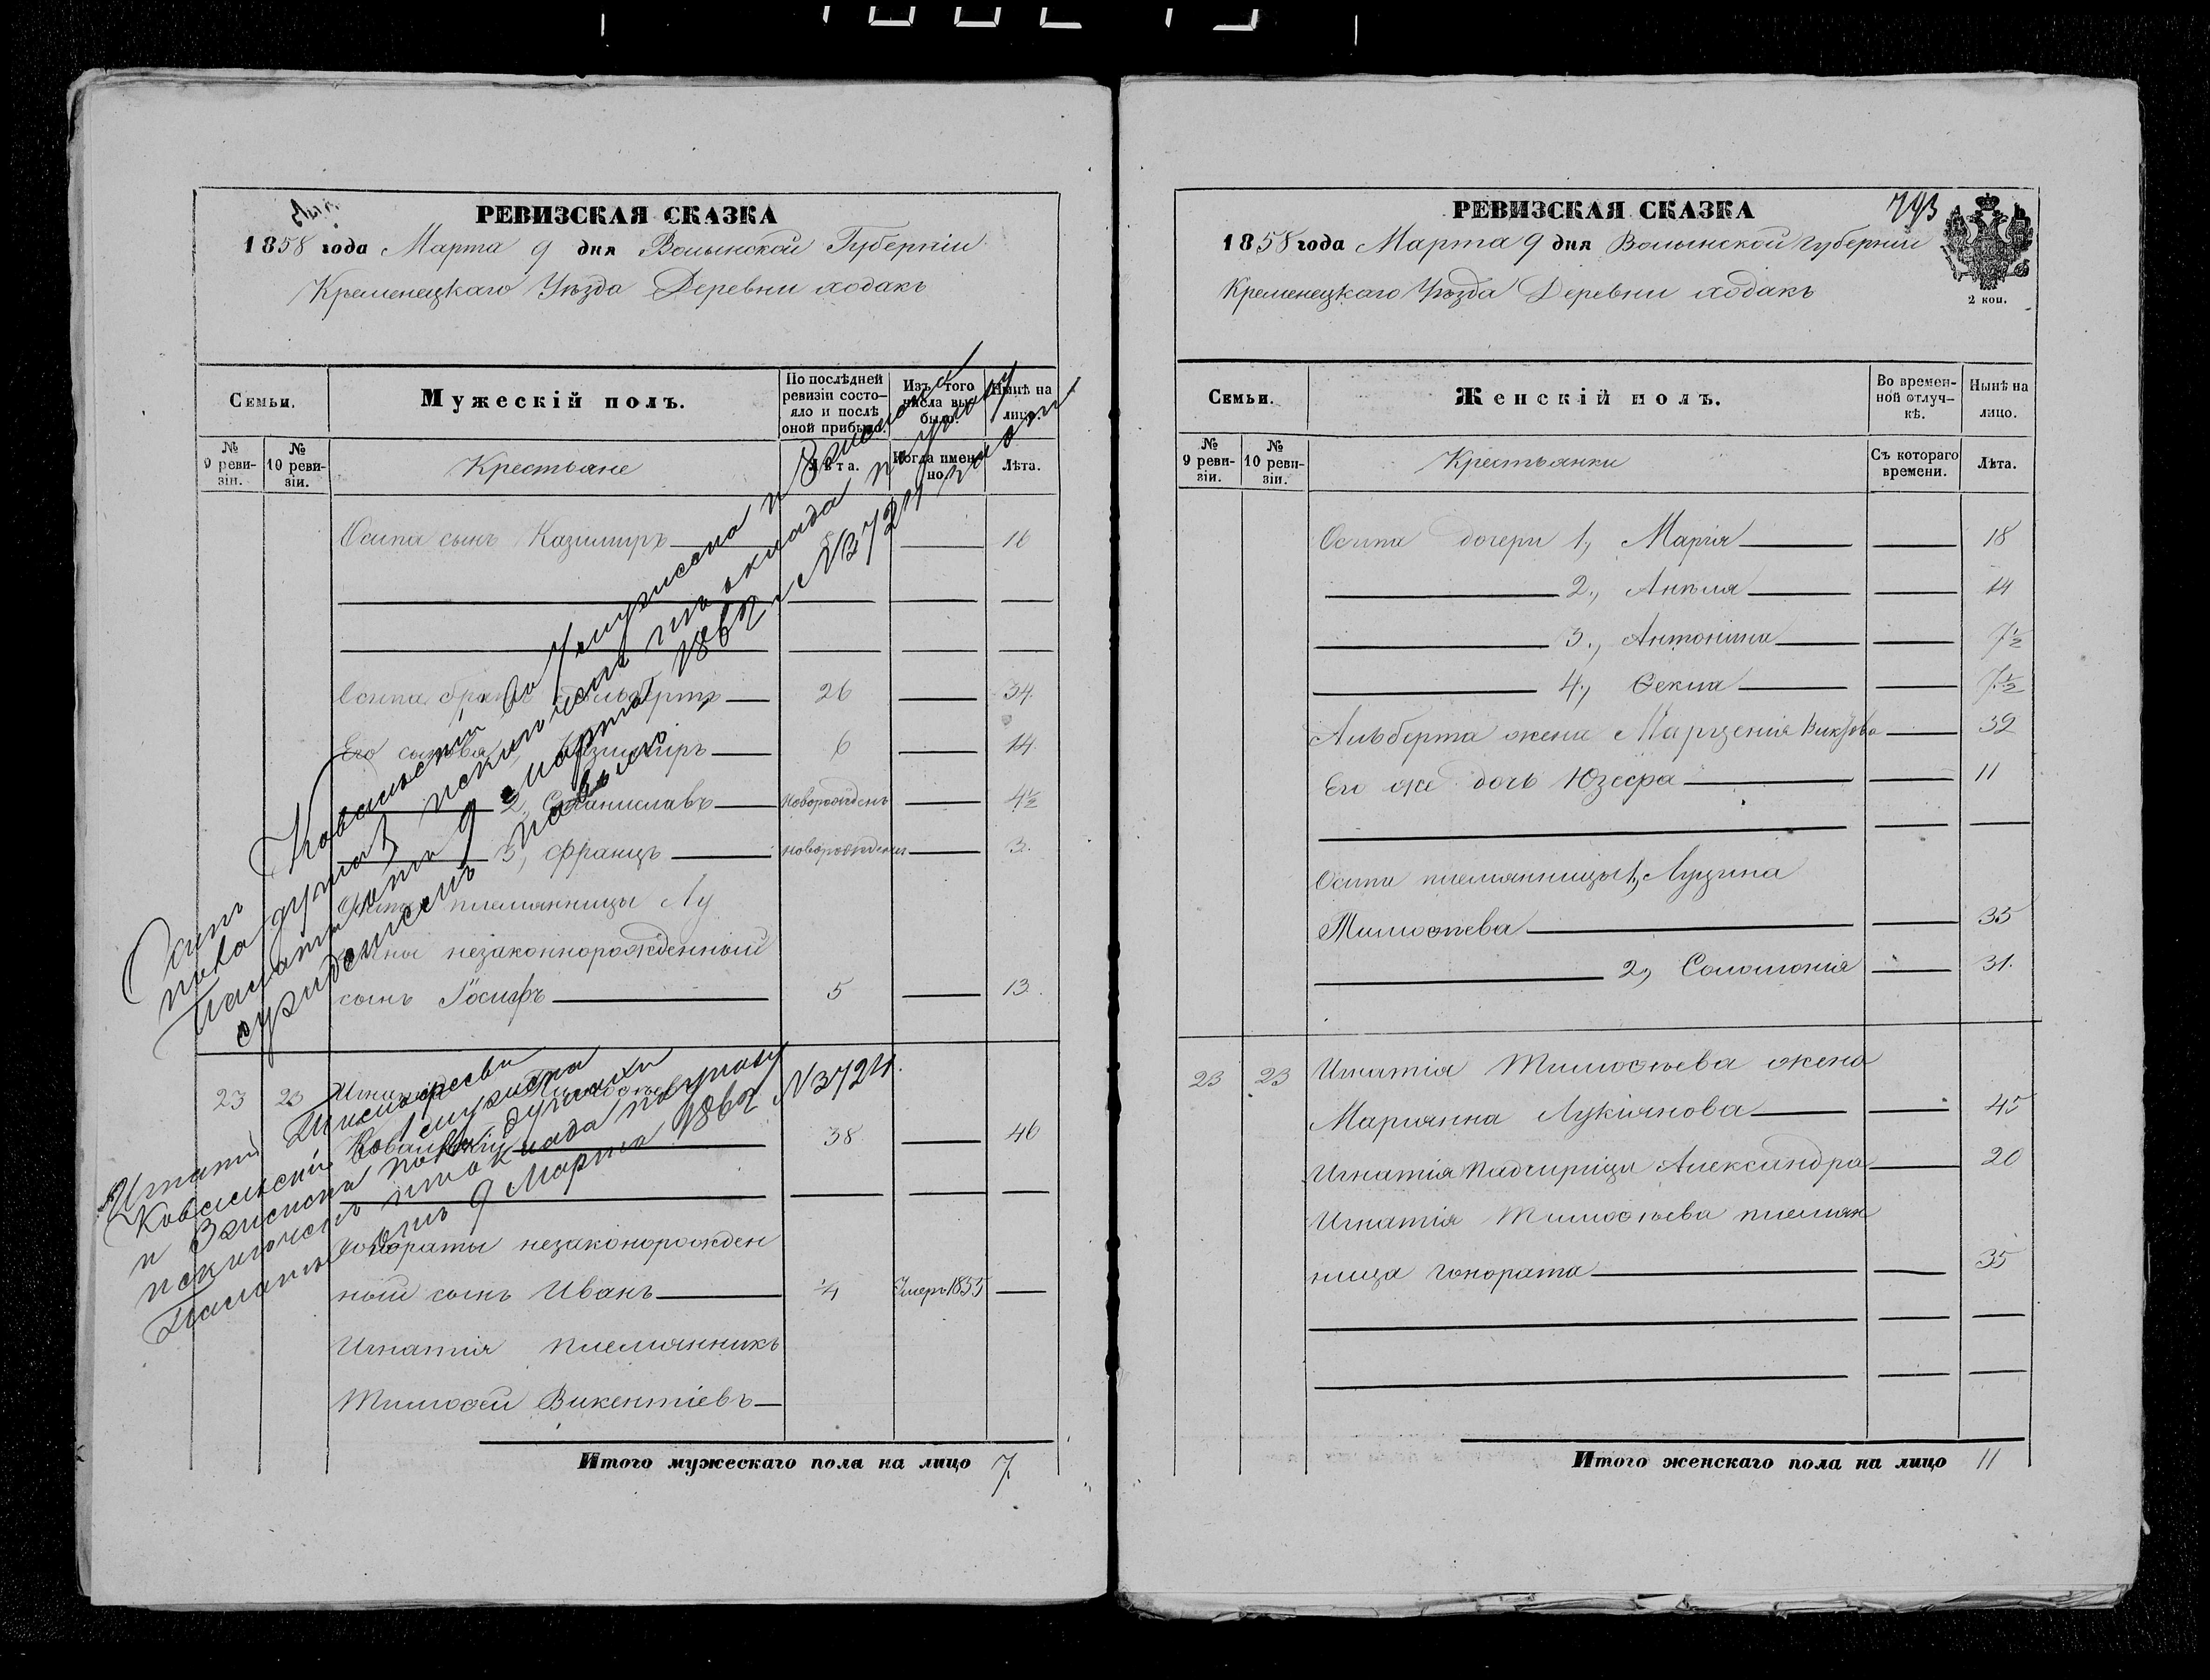 РЕВИЗСКАЯ СКАЗКА
1858 года Марта 9 дня Волынской Губерніи
Кременецкаго Уѣзда Деревни Ходакъ
Семьи.
Мужескій полъ.
По послѣдней ревизіи состояло и послѣ оной прибыло.
Изъ того числа выбыло.
Нынѣ на лицо.
№ 9 ревизіи.
№ 10 ревизіи.
Крестьяне
Лѣта.
Когда именно.
Лѣта.
Осипа сынъ Казимиръ 16
Осипа братъ Альбертъ 26 34
Его сыновья Казимиръ 6 14
2, Станиславъ новорожденъ 4½
3, Францъ новорожденъ 3
Осипа племянницы Лу
цины незаконнорожденный
сынъ Іосифъ 5 13
23 23 Игнатій Тимофеевъ
Ковальскій 38 46
Гонораты незаконорожден
ный сынъ Иванъ ¼ Умеръ 1855
Игнатія племянникъ
Тимофей Викентіевъ
Итого мужескаго пола на лицо 7
Осипъ Ковальскій
исключенъ изъ оклада по указу
Палаты отъ 9 Марта 1862 № 3724
Игнатій Тимофеевъ
Ковальскій
исключенъ изъ оклада по указу
Палаты отъ 9 Марта 1862 № 3724.
РЕВИЗСКАЯ СКАЗКА
743
1858 года Марта 9 дня Волынской Губерніи
Кременецкаго Уѣзда Деревни Ходакъ
2 коп.
Семьи.
Женскій полъ.
Во временной отлучкѣ.
Нынѣ на лицо.
№ 9 ревизіи.
№ 10 ревизіи.
Крестьянки
Съ котораго времени.
Лѣта.
Осипа дочери 1, Марія 18
2, Анѣля 14
3, Антонина 7½
4, Фекла 7½
Альберта жена Марцеля 32
Его же дочь Юзефа 11
Осипа племянницы 1, Луцина
Тимофѣева 35
2, Соломонія 31.
23 23 Игнатія Тимофѣева жена
Маріянна Лукіянова 45
Игнатія падчирица Александра 20
Игнатія Тимофѣева племян
ница Гонората 35
Итого женскаго пола на лицо 11